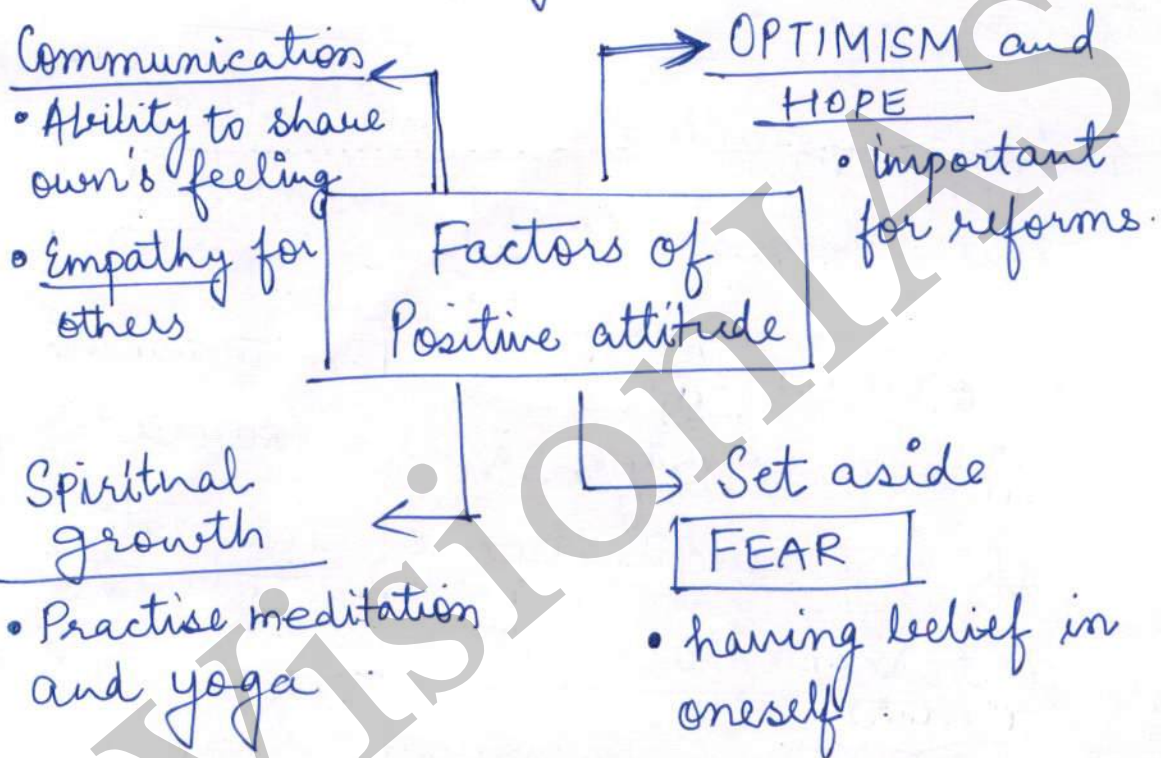 Communication
• Ability to share
own's feeling
• Empathy for
others
OPTIMISM and
HOPE
• important
for reforms.
Factors of
Positive attitude
Spiritual
growth
• Practise meditation
and yoga
Set aside
FEAR
• having belief in
oneself.
VisionIAS